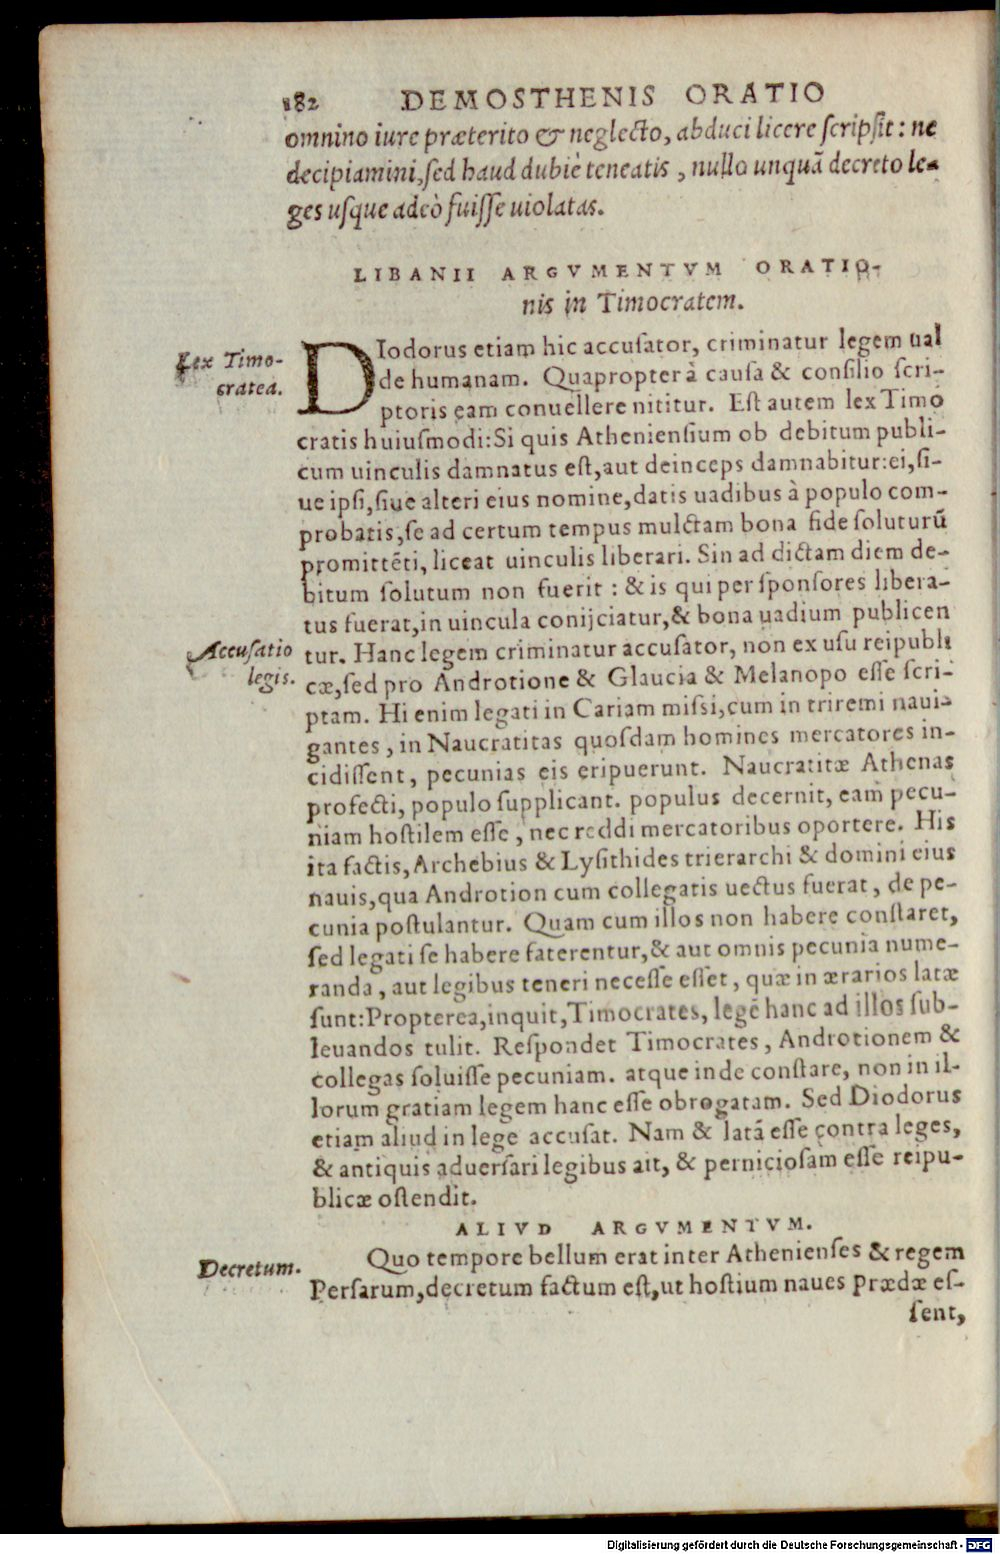 182 DEMOSTHENIS ORATIO
omnino iure præterito & neglecto, abduci licere scripsit: ne
decipiamini, sed haud dubiè teneatis, nullo unquā decreto le-
ges usque adeò fuisse uiolatas.
LIBANII ARGVMENTVM ORATIO-
nis in Timocratem.
Lex Timo-
cratea.
DIodorus etiam hic accusator, criminatur legem ual
de humanam. Quapropter à causa & consilio scri-
ptoris eam conuellere nititur. Est autem lex Timo
cratis huiusmodi: Si quis Atheniensium ob debitum publi-
cum uinculis damnatus est, aut deinceps damnabitur: ei, si-
ue ipsi, siue alteri eius nomine, datis uadibus à populo com-
probatis, se ad certum tempus mulctam bona fide soluturū
promittēti, liceat uinculis liberari. Sin ad dictam diem de-
bitum solutum non fuerit: & is qui per sponsores libera-
tus fuerat, in uincula conijciatur, & bona uadium publicen
Accusatio
legis.
tur. Hanc legem criminatur accusator, non ex usu reipubli
cæ, sed pro Androtione & Glaucia & Melanopo esse scri-
ptam. Hi enim legati in Cariam missi, cum in triremi naui-
gantes, in Naucratitas quosdam homines mercatores in-
cidissent, pecunias eis eripuerunt. Naucratitæ Athenas
profecti, populo supplicant. populus decernit, eam pecu-
niam hostilem esse, nec reddi mercatoribus oportere. His
ita factis, Archebius & Lysithides trierarchi & domini eius
nauis, qua Androtion cum collegatis uectus fuerat, de pe-
cunia postulantur. Quam cum illos non habere constaret,
sed legati se habere faterentur, & aut omnis pecunia nume-
randa, aut legibus teneri necesse esset, quæ in ærarios latæ
sunt: Propterea, inquit, Timocrates, legē hanc ad illos sub-
leuandos tulit. Respondet Timocrates, Androtionem &
collegas soluisse pecuniam. atque inde constare, non in il-
lorum gratiam legem hanc esse obrogatam. Sed Diodorus
etiam aliud in lege accusat. Nam & latā esse contra leges,
& antiquis aduersari legibus ait, & perniciosam esse reipu-
blicæ ostendit.
ALIVD ARGVMENTVM.
Decretum.
Quo tempore bellum erat inter Athenienses & regem
Persarum, decretum factum est, ut hostium naues prædæ es-
sent,
Digitalisierung gefördert durch die Deutsche Forschungsgemeinschaft - DFG